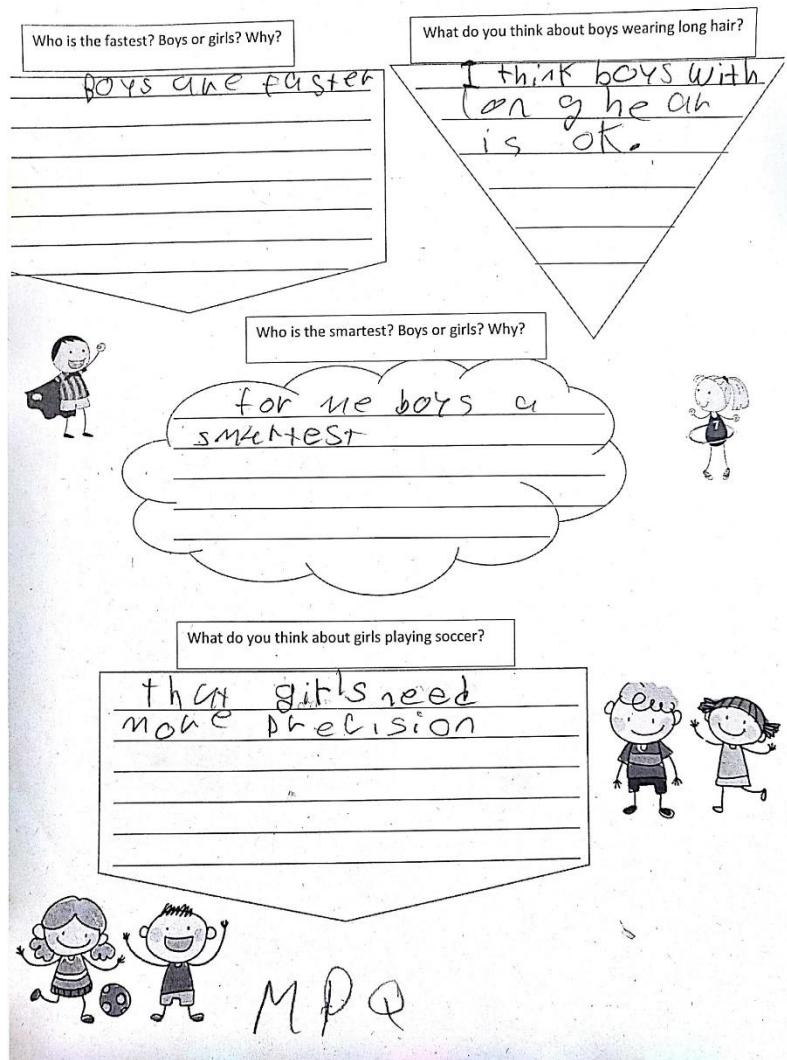 Who is the fastest? Boys or girls? Why?
Boys are faster
What do you think about boys wearing long hair?
I think boys with
long hear
is ok.
Who is the smartest? Boys or girls? Why?
for me boys a
smartest
What do you think about girls playing soccer?
that girls need
more precision
7
MPQ